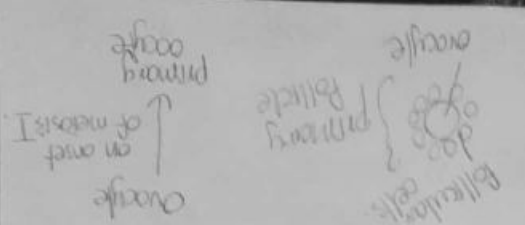 follicular
cells
primary
follicle
ovocyte
Ovocyte
on onset
of meiosis I.
primary
oocyte